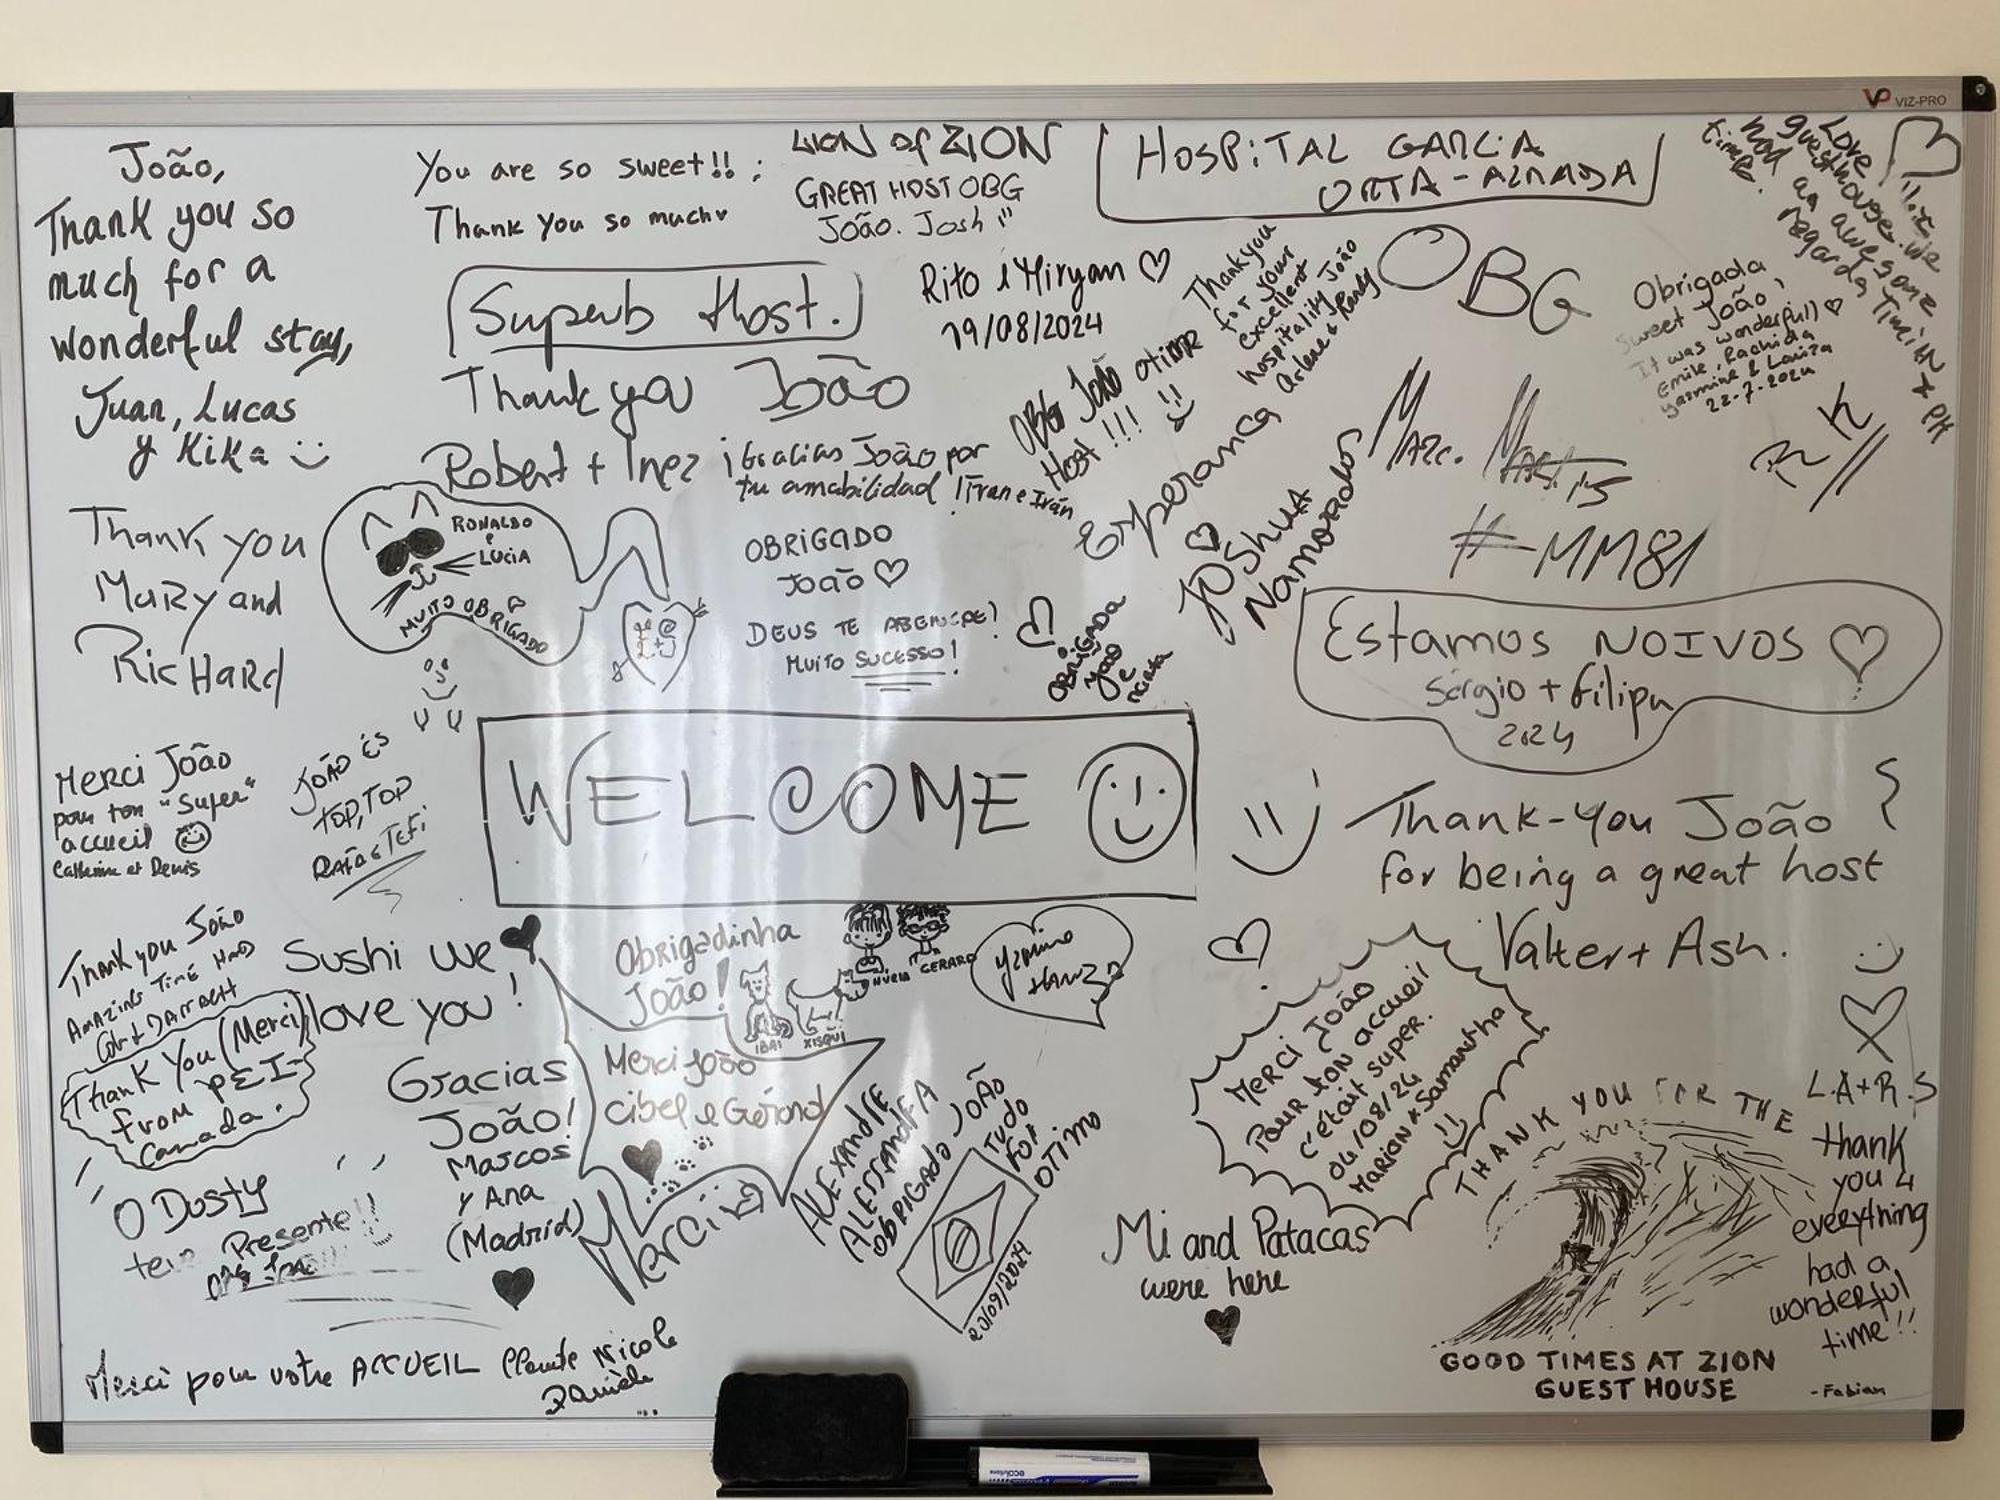 VIZ-PRO
João,
Thank you so
much for a
wonderful stay,
Juan, Lucas
y Kika
You are so sweet!!
Thank you so much
LION of ZION
GREAT HOST OBG
João. Josh
HOSPITAL GARCIA
ORTA-ALMADA
Love
guesthouse. We
had an awesome
time.
regards
Superb Host.
Thank you João
Robert + Inez
Rito e Miryam
19/08/2024
Thank you
for your
excellent
hospitality João
Arlene & Randy
OBG João otimo
Host!!!
OBG
Obrigada
sweet João,
It was wonderful!)
Emile, Rachida
yasmine & Louiza
22-7-2024
Marc. Martis
#-MM81
R K
¡Gracias João por
tu amabilidad! Fran e Irán
Esperança
JOSHUA
Namorados
Thank you
Mary and
RicHard
RONALDO
e
LUCIA
MUITO OBRIGADO
OBRIGADO
JOÃO
DEUS TE ABENÇOE!
MUITO SUCESSO!
OBRIGADA
João
e
Estamos NOIVOS
Sérgio + Filipa
2024
WELCOME
Merci João
pour ton "Super"
accueil
Catherine et Denis
JOÃO ÉS
TOP, TOP
RAFA e TEFI
Thank-you João
for being a great host
Valter + Ash.
Thank you João
Amazing Time Had
Sushi we
love you!
Thank You (Merci)
from PEI-
Canada.
Obrigadinha
João!
NÚRIA GERARD
IBAI XISQUI
Merci João
Cibel e Gérard
Merci
Gracias
João!
Marcos
Y Ana
(Madrid)
O Dusty
teve Presente!!
ALEXANDRE
ALESSANDRA
OBRIGADO JOÃO
TUDO
FOI
OTIMO
20/09/2024
Merci João
Pour ton accueil
c'était super.
04/08/24
Marion & Samantha
Mi and Patacas
were here
THANK YOU FOR THE
GOOD TIMES AT ZION
GUEST HOUSE
-Fabian
L.A+R.S
thank
you 4
everything
had a
wonderful
time!!
Merci pour votre ACCUEIL Nicole
Danièle